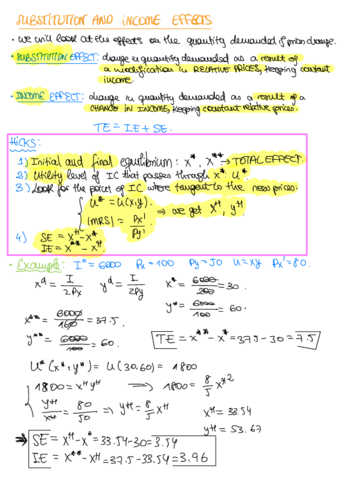 SUBSTITUTION AND INCOME EFFECTS
- We will look at the effects on the quantity demanded if prices change.
- SUBSTITUTION EFFECT: change in quantity demanded as a result of
a modification in RELATIVE PRICES, keeping constant
income
- INCOME EFFECT: change in quantity demanded as a result of a
CHANGE IN INCOME, keeping constant relative prices.
TE = IE + SE.
HICKS:
1) Initial and final equilibrium: x*, x** → TOTAL EFFECT.
2) Utility level of IC that passes through x* U*.
3) Look for the point of IC where tangent to the new prices:
{ U* = U(x,y).
|MRS| = Px'/Py' ⇒ we get xH, yH
4) SE = xH - x*
IE = x** - xH
- Example: I° = 6000 Px = 100 Py = 50 U = xy Px' = 80.
xd = I/2Px yd = I/2Py x* = 6000/200 = 30.
y* = 6000/100 = 60.
x** = 6000/160 = 37.5.
y** = 6000/100 = 60. TE = x** - x* = 37.5 - 30 = 7.5
U*(x*,y*) = U(30,60) = 1800
{ 1800 = xH yH → 1800 = 8/5 xH2
yH/xH = 80/50 ⇒ yH = 8/5 xH xH = 33.54
yH = 53.67
⇒ SE = xH - x* = 33.54 - 30 = 3.54
IE = x** - xH = 37.5 - 33.54 = 3.96